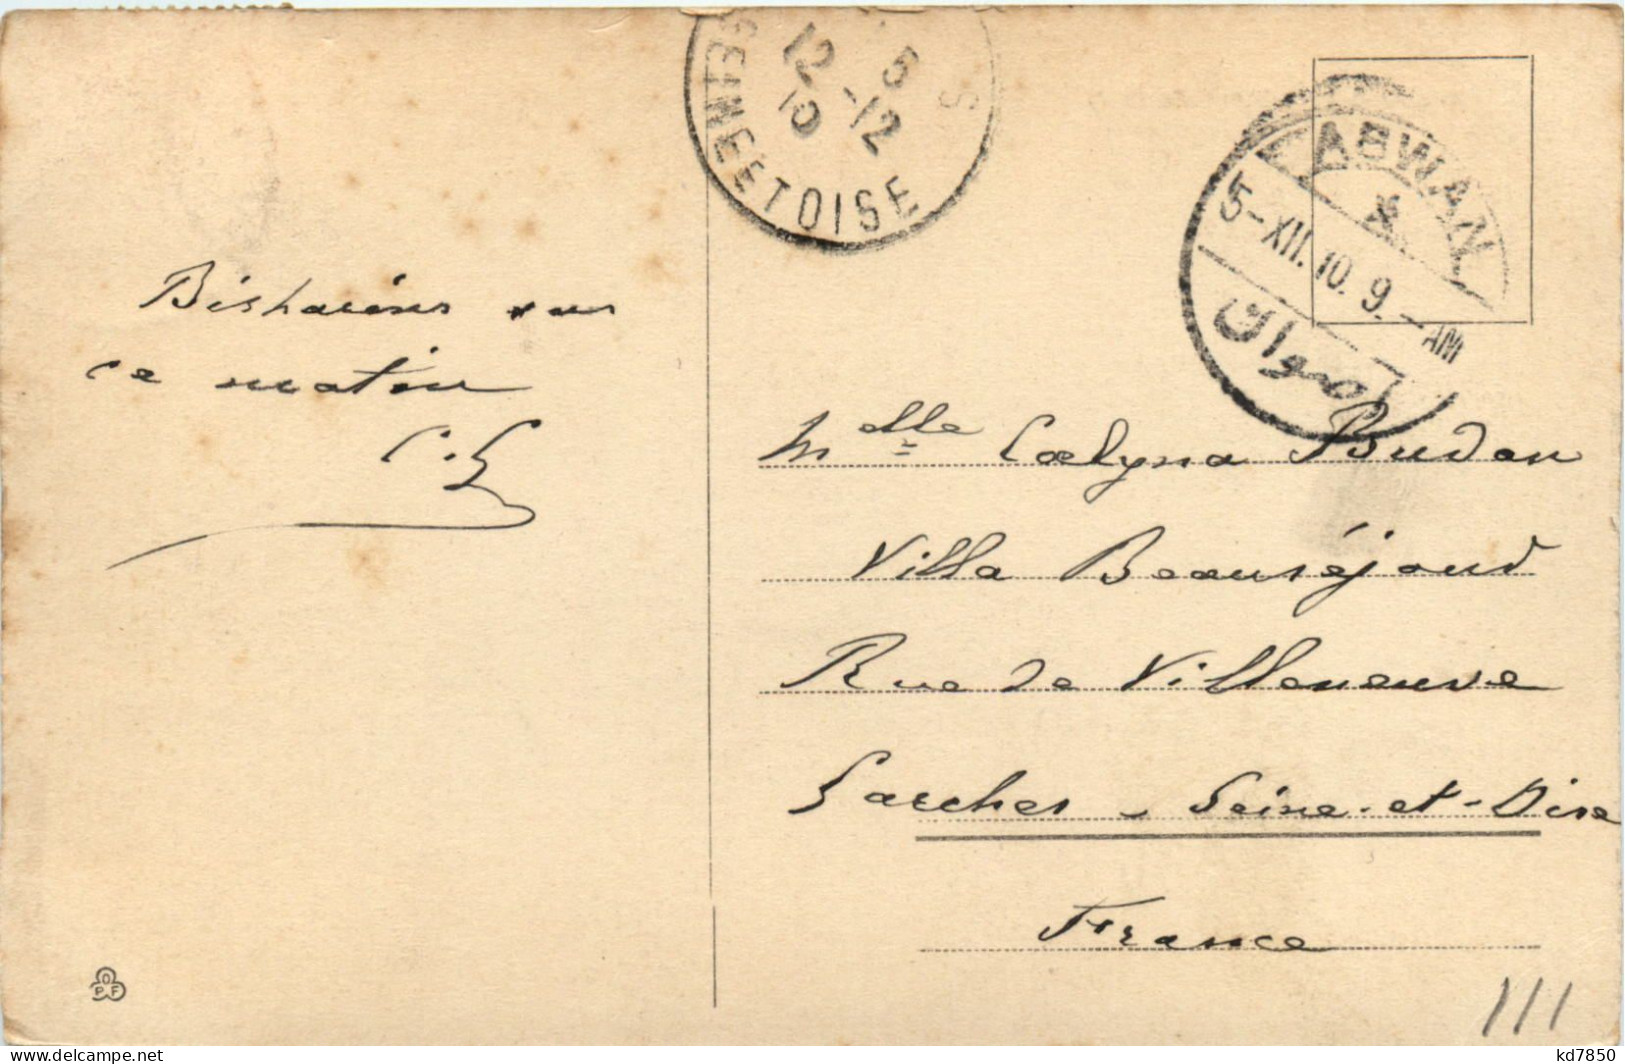 5
12 -12
10
S
SEINE ET OISE
ASWAN
5-XII.10.9.-AM
اصوان
Bisharins vus
ce matin
C.G
Mlle Coelyna Budan
Villa Beauséjour
Rue de Villeneuve
Garches - Seine-et-Oise
France
OPF
111
kd7850